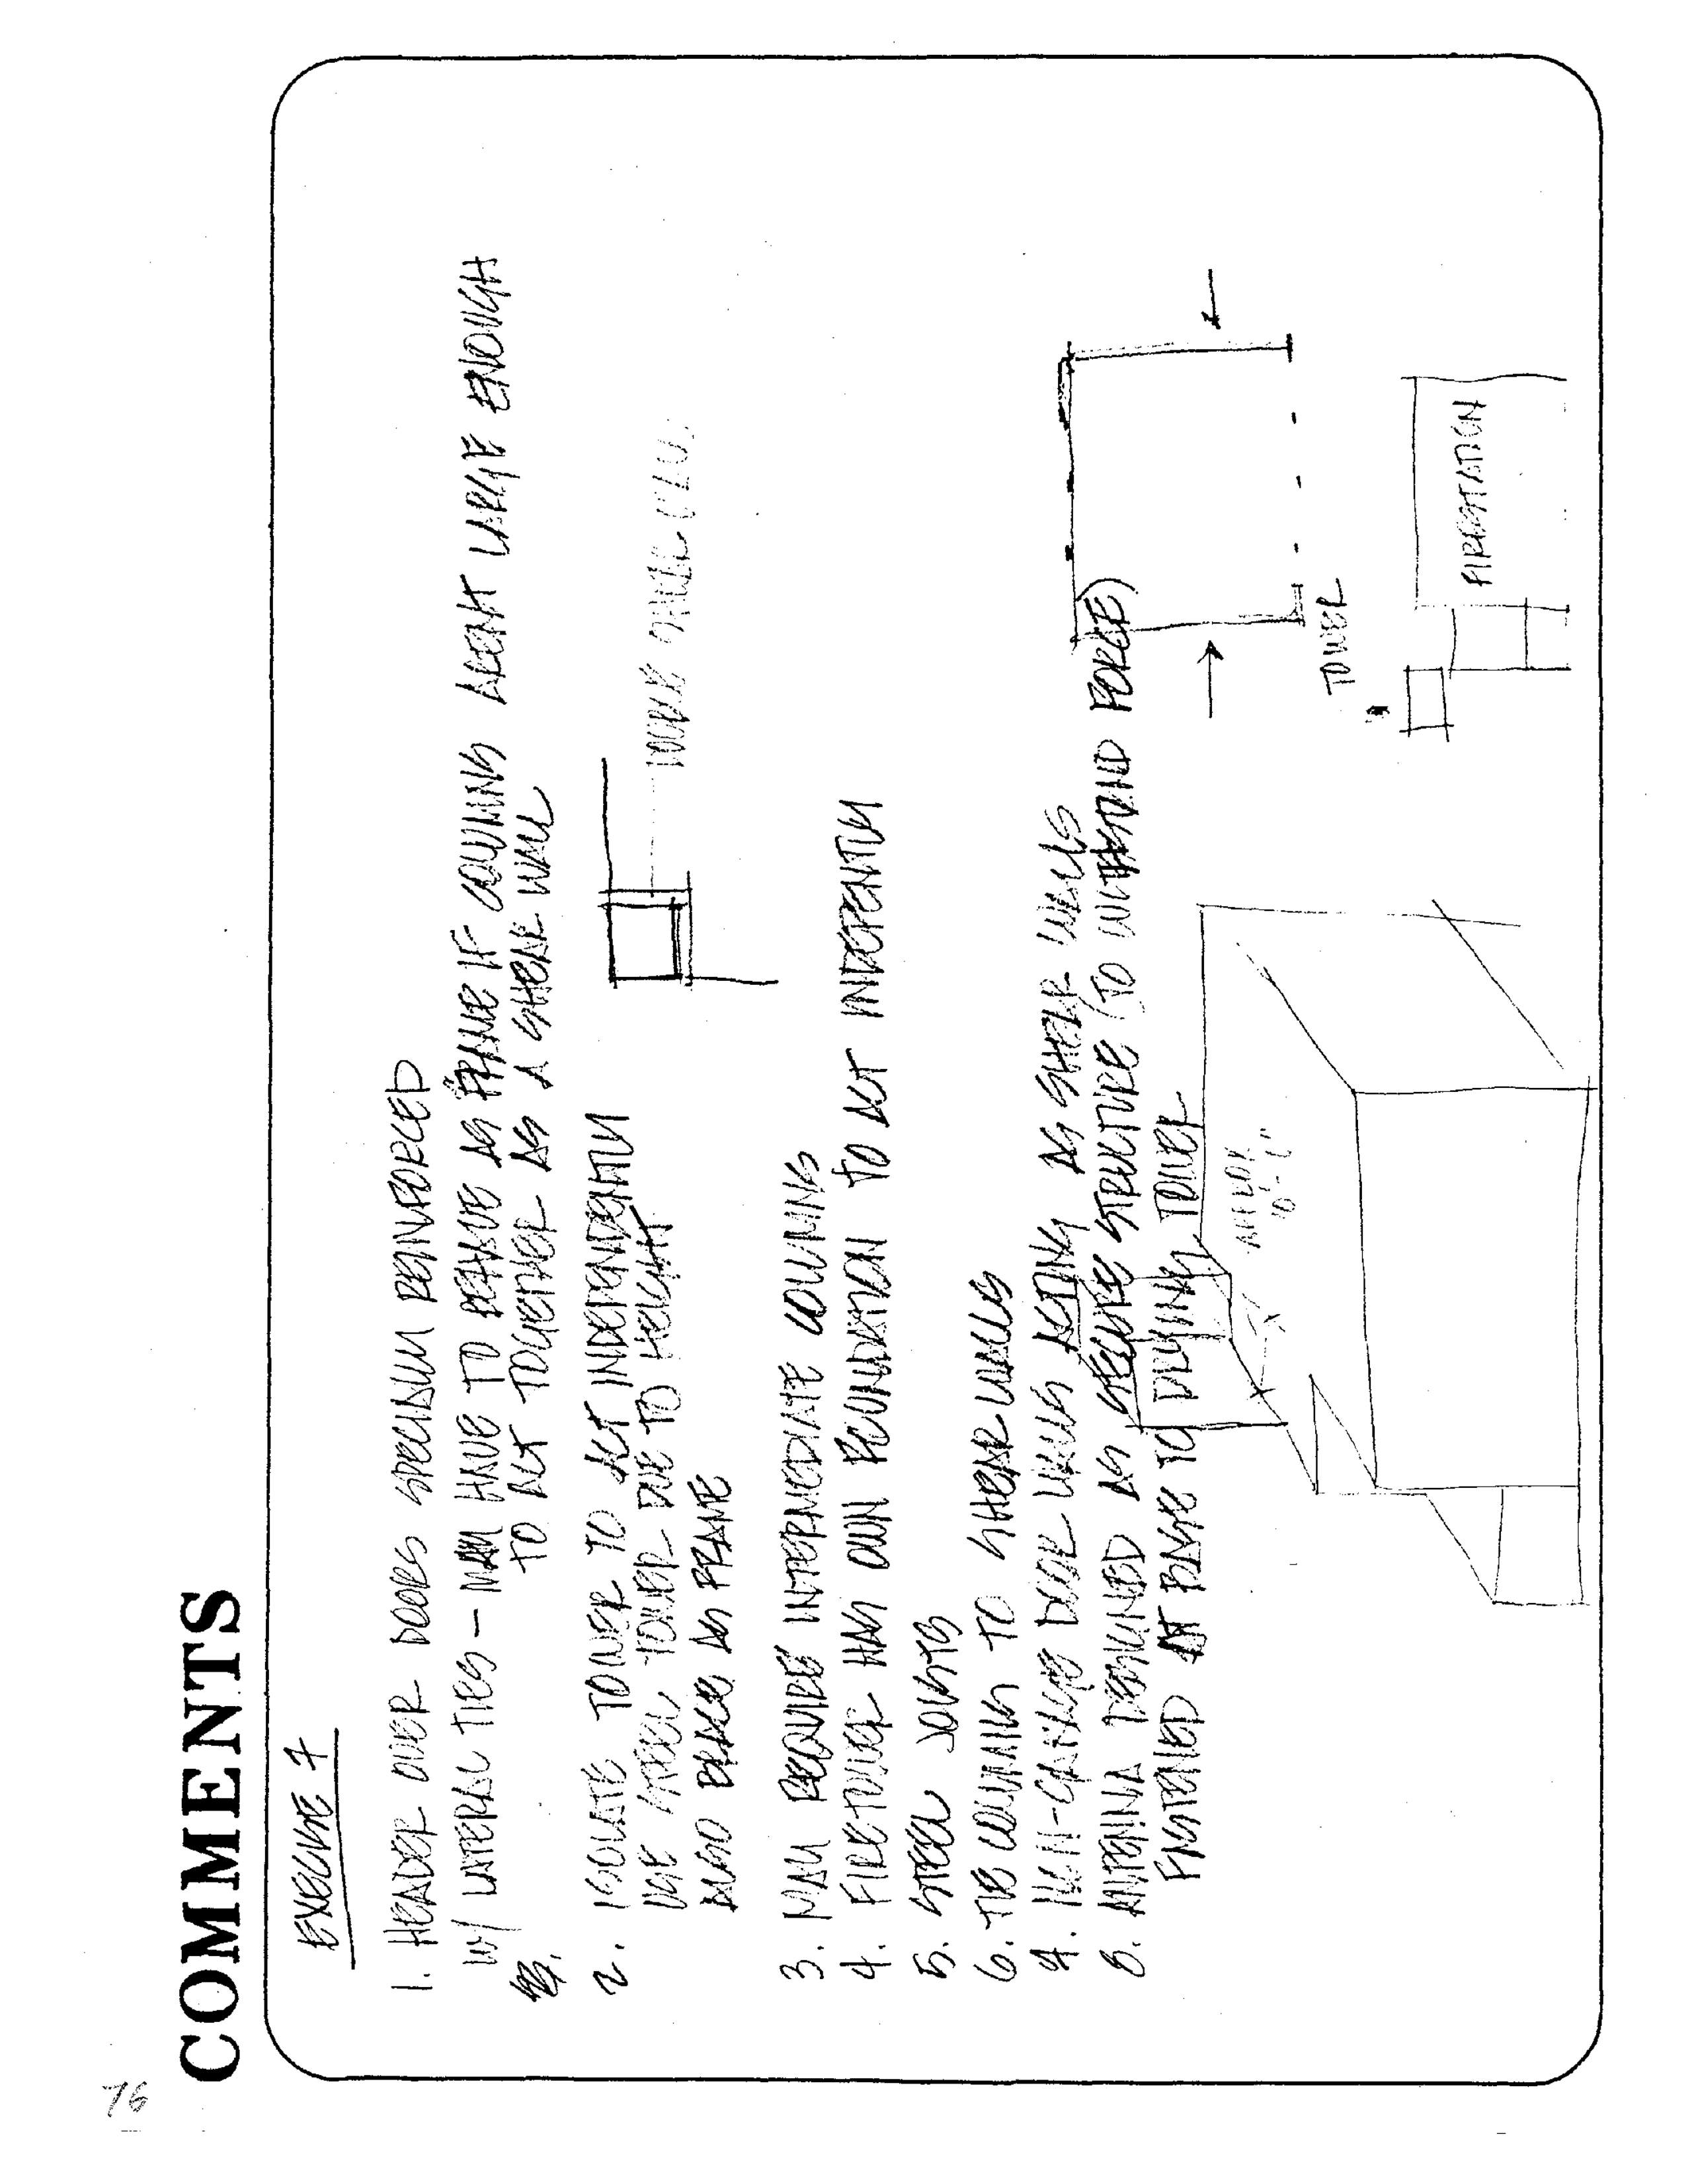 76
COMMENTS
1. HEADER OVER DOORS SPECIALLY REINFORCED
W/ LATERAL TIES - MAY HAVE TO BEHAVE AS FRAME IF COLUMNS AREN'T LARGE ENOUGH
TO ACT TOGETHER AS A SHEAR WALL
2. ISOLATE TOWER TO ACT INDEPENDENTLY
USE STEEL TOWER DUE TO HEIGHT
ALSO BRACE AS FRAME
3. MAY REQUIRE INTERMEDIATE COLUMNS
4. FIRE TOWER HAS OWN FOUNDATION TO ACT INDEPENTLY
5. STEEL JOISTS
6. TIE COLUMNS TO SHEAR WALLS
7. DOOR WALLS ACTING AS SHEAR WALLS
8. ANTENNA DESIGNED AS SECURE STRUCTURE (TO WITHSTAND FORCE)
FASTENED AT BASE TO DRYING TOWER
TOWER
FIRESTATION